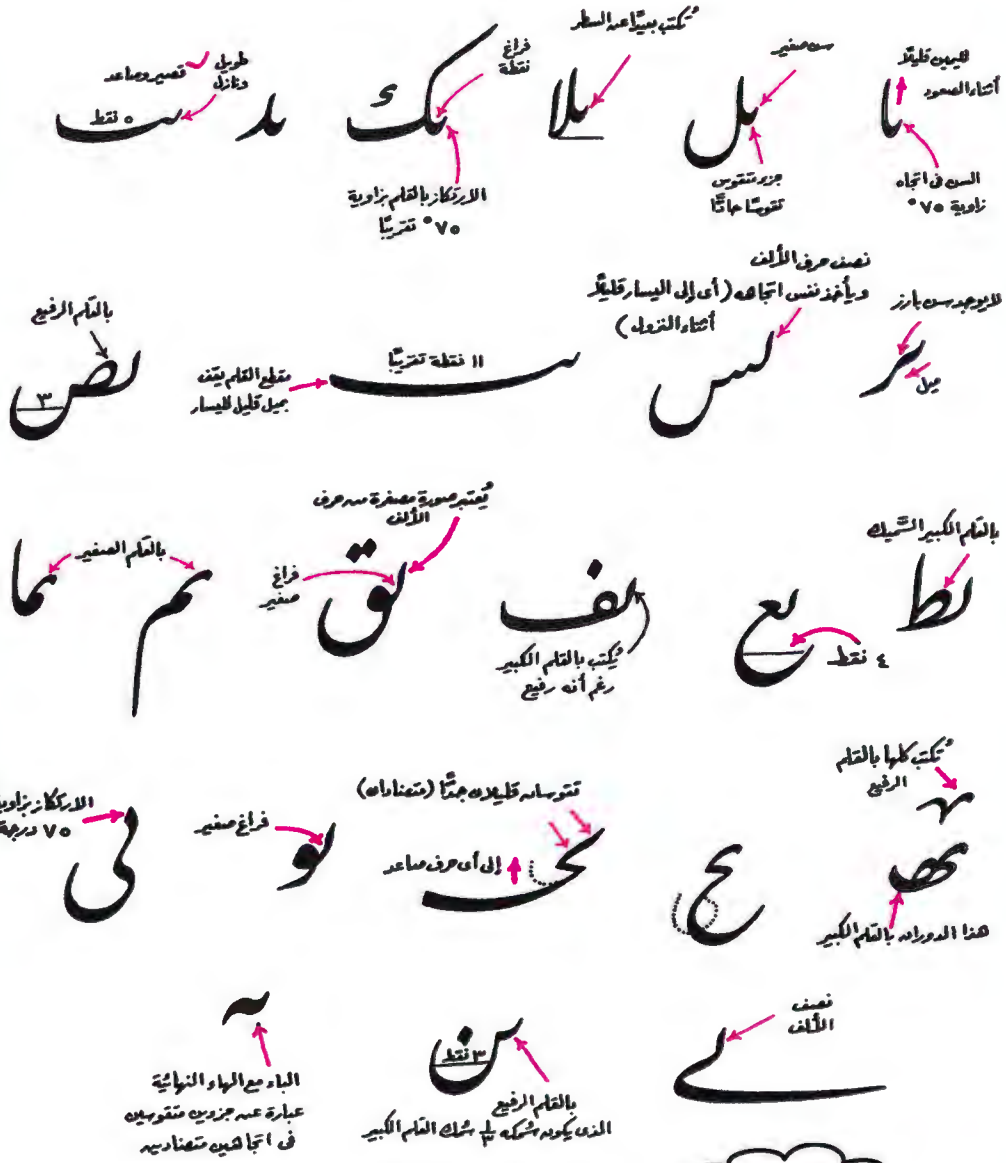 لليمين قليلاً
أثناء الصعود
با
السن فى اتجاه
زاوية ٧٥°
سن صغير
بل
جزء متقوس
تقوسًا حادًّا
تُكتب بعيدًا عن السطر
بلا
فراغ
نقطة
بك
الارتكاز بالقلم بزاوية
٧٥° تقريبًا
بد
طويل
ونازل
قصير وصاعد
٥ نقط
لا يوجد سن بارز
بر
ميل
نصف حرف الألف
ويأخذ نفس اتجاهه (أى إلى اليسار قليلاً
أثناء النزول)
بس
١١ نقطة تقريبًا
مقطع القلم يقف
بميل قليل لليسار
بالقلم الرفيع
بص
٣
بالقلم الكبير السَّميك
بط
بع
٤ نقط
بف
يُكتب بالقلم الكبير
رغم أنه رفيع
يُعتبر صورة مصغرة من حرف
الألف
فراغ
صغير
بق
بالقلم الصغير
بم
بما
تُكتب كلها بالقلم
الرفيع
بهـ
هذا الدوران بالقلم الكبير
بح
تقوسان قليلان جدًّا (متضادان)
إلى أى حرف صاعد
فراغ صغير
بو
الارتكاز بزاوية
٧٥ درجة
بى
نصف
الألف
بے
بن
٣ نقط
بالقلم الرفيع
الذى يكون سُمكه ١/٣ سُمك القلم الكبير
به
الباء مع الهاء النهائية
عبارة عن جزءين متقوسين
فى اتجاهين متضادين